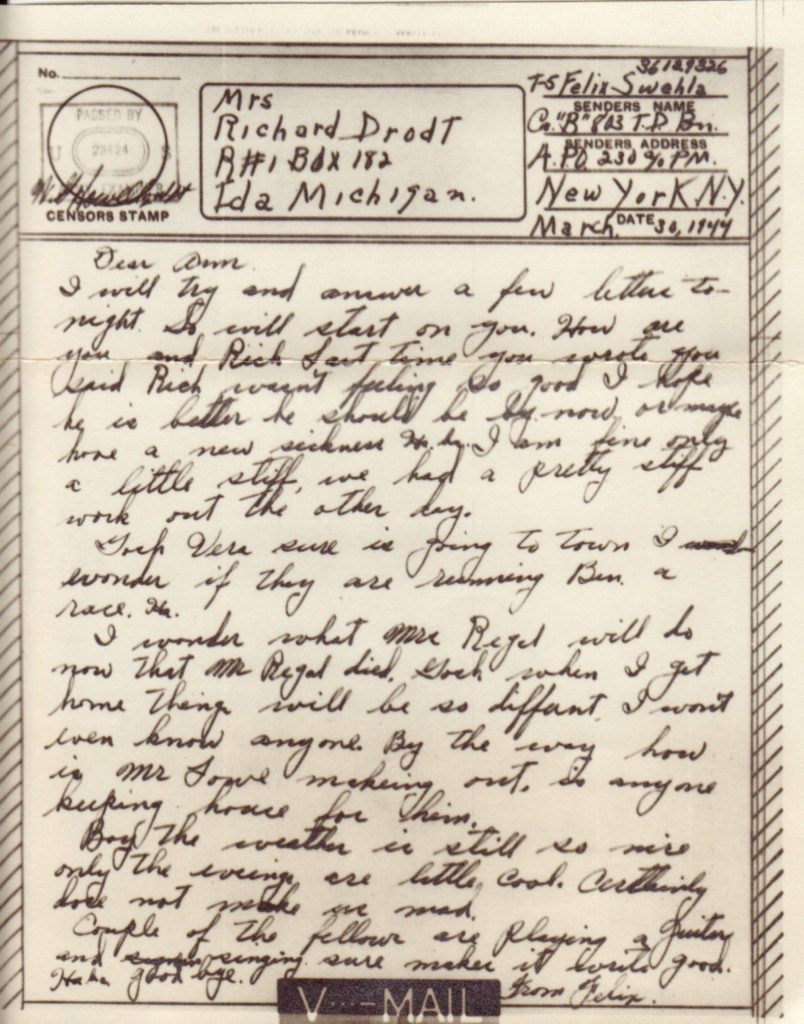 No.
PASSED BY
U S
23424
CENSORS STAMP
Mrs
Richard Drodt
R#1 BOX 182
Ida Michigan.
36129326
T-5 Felix Swahla
SENDERS NAME
Co."B" 803 T.D. Bn.
SENDERS ADDRESS
A.P.O. 230 % PM.
New York N.Y.
DATE
March 30, 1944
Dear Ann
I will try and answer a few letters to-
night. So will start on you. How are
you and Rich Last time you wrote you
said Rich wasn't feeling so good I hope
he is better he should be by now, or maybe
have a new sickness Ha, ha. I am fine only
a little stiff, we had a pretty stiff
work out the other day.
Gosh Vera sure is going to town I
wonder if they are running Ben. a
race. Ha.
I wonder what Mrs Regel will do
now that Mr Regel died. Gosh when I get
home things will be so diffant, I won't
even know anyone. By the way how
is Mr makeing out, is anyone
keeping house for them.
Boy the weather is still so nice
only the evenings are little cool. Certainly
dose not make us mad.
Couple of the fellows are playing a guitar
and singing sure makes it write good.
Ha ha good bye. From Felix.
V···—MAIL